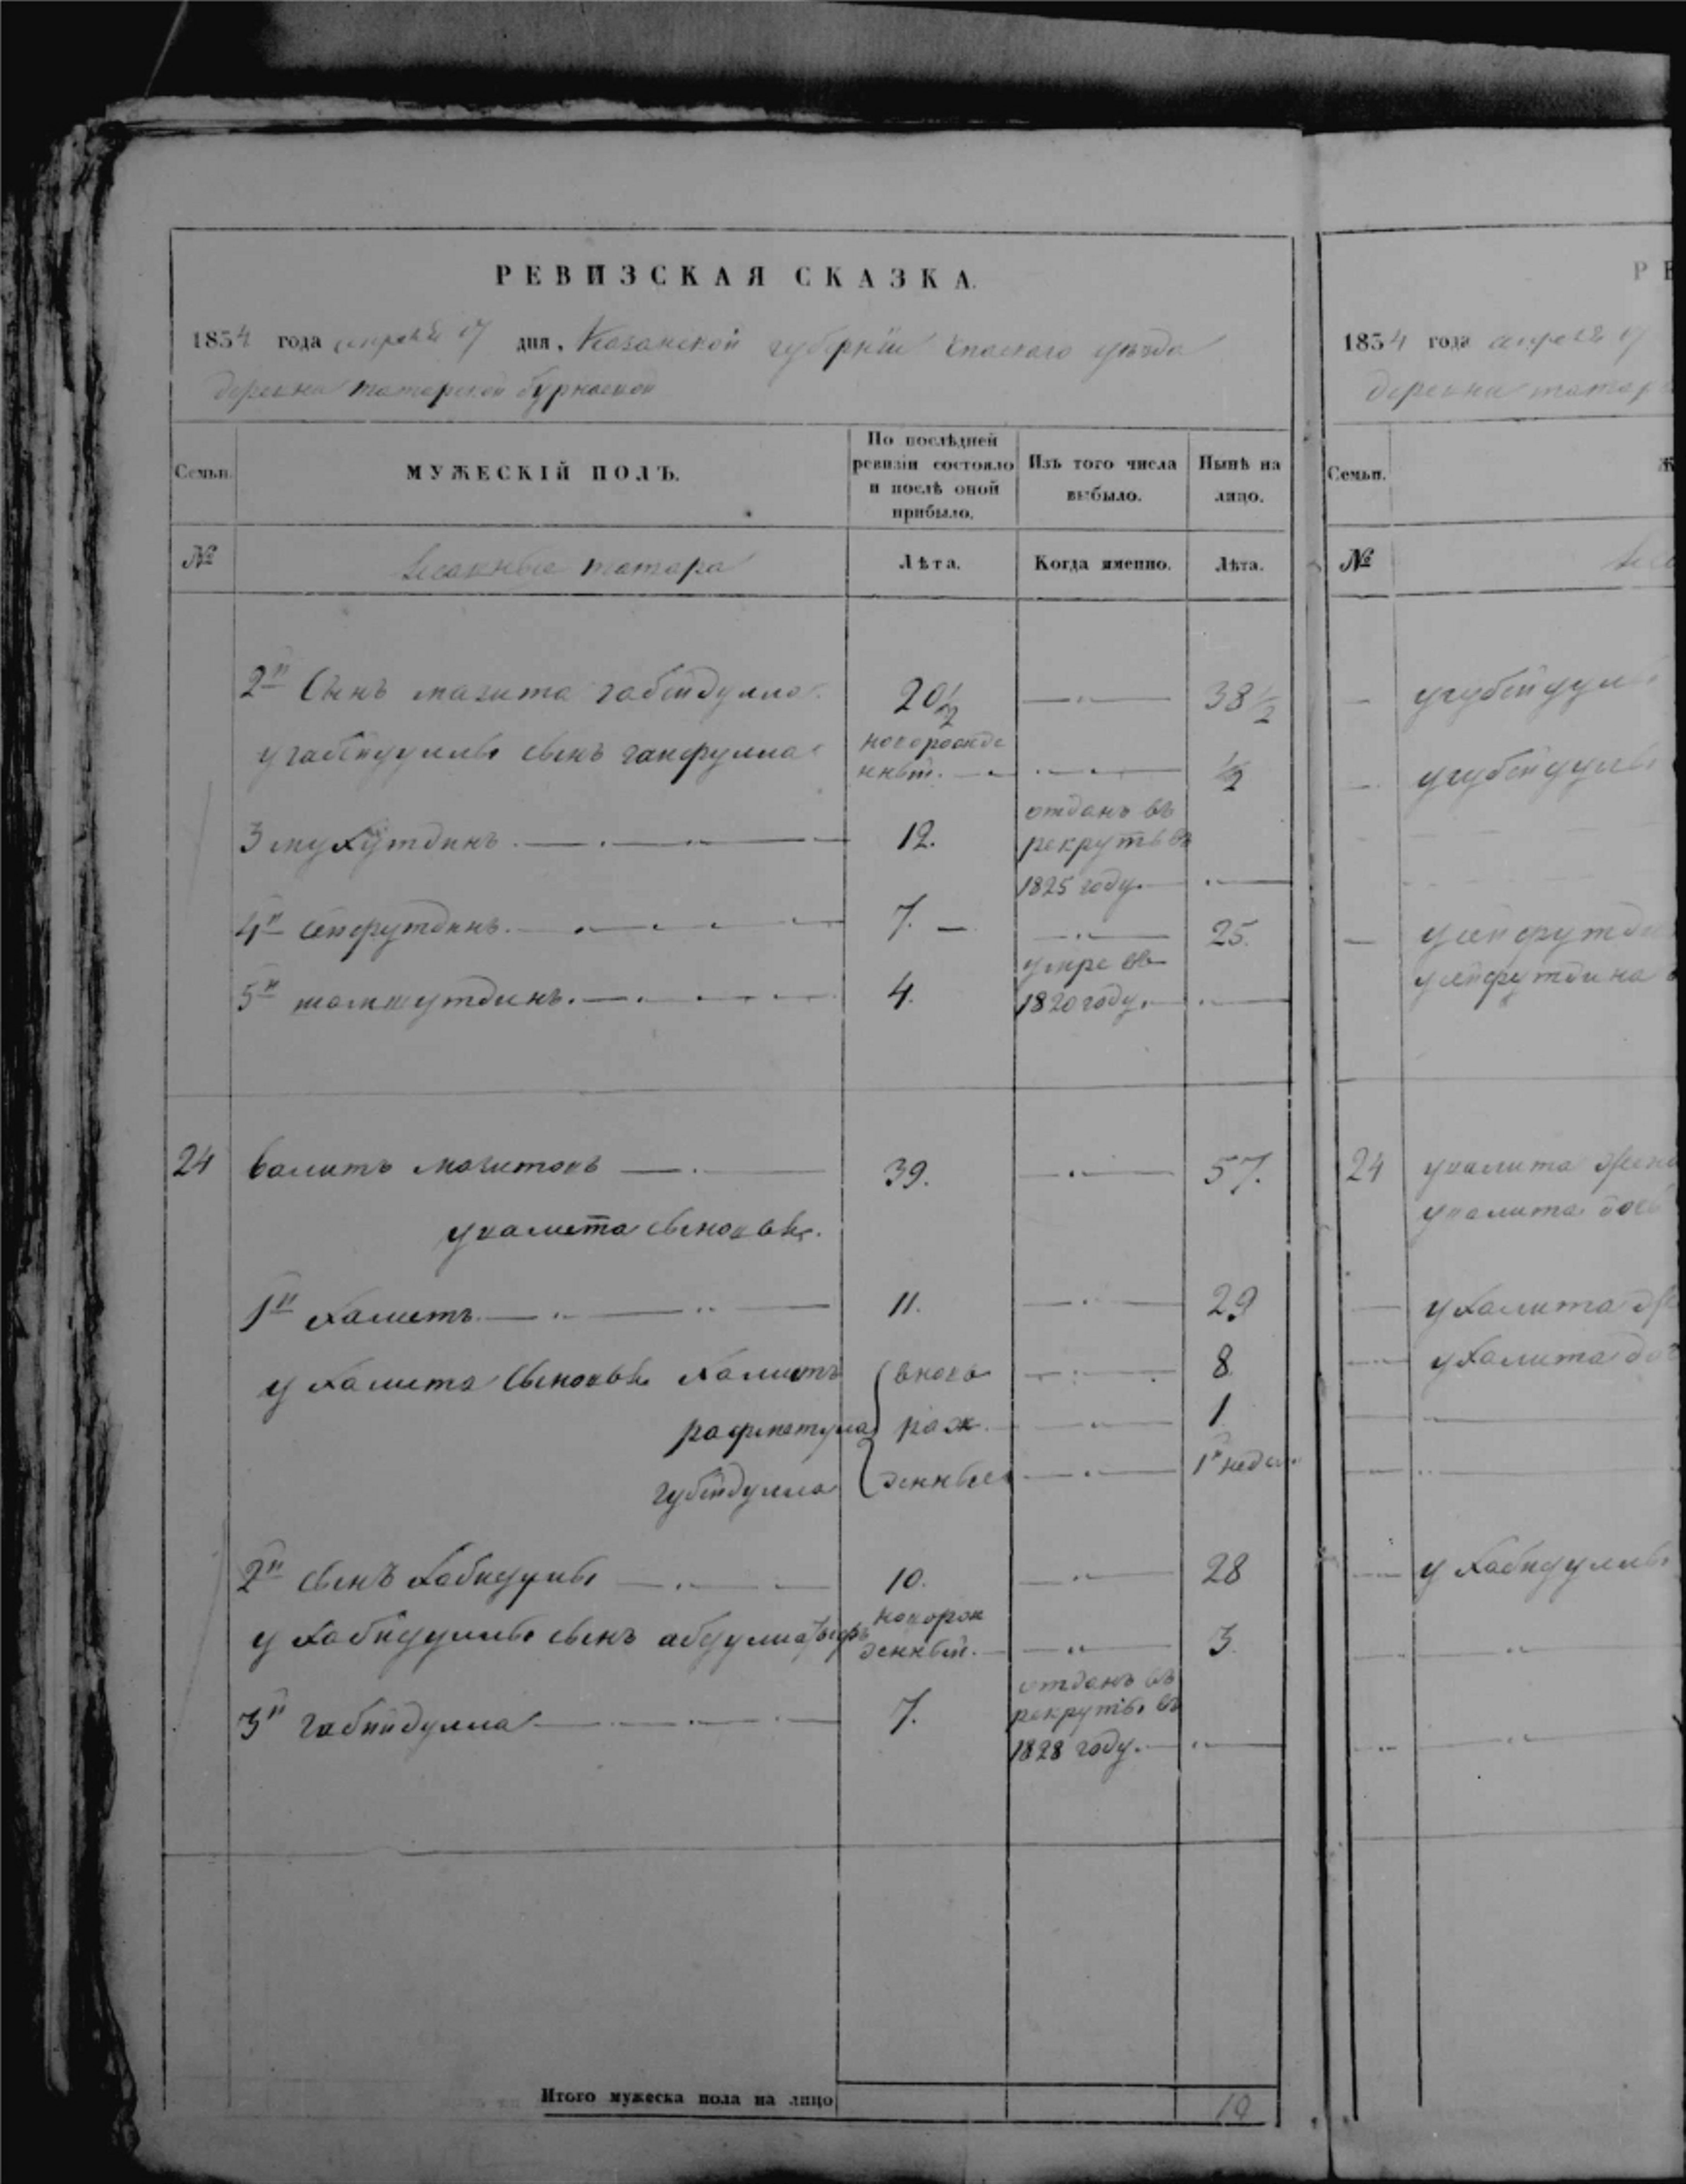 РЕВИЗСКАЯ СКАЗКА.
1834 года апреля 17 дня, Казанской губернiи спаскаго уезда
деревни татарской бурнаевой
Семьи.
МУЖЕСКІЙ ПОЛЪ.
По послѣдней ревизіи состояло и послѣ оной прибыло.
Изъ того числа выбыло.
Нынѣ на лицо.
№
ясашные татара
Лѣта.
Когда именно.
Лѣта.
2й Сынъ магита габейдулла 20½ 38½
у габейдуллы сынъ ганфулла новорожде нный. ½
3 мухутдинъ 12. отданъ въ рекруты въ 1825 году.
4й сейфутдинъ. 7. 25.
5й 4. умре въ 1820 году.
24 валитъ магитовъ 39. 57.
у валита сыновья.
1й халитъ 11. 29
у халита сыновья халитъ вновь 8
рафиетула рож 1
губейдулла денные 1й недел.
2й сынъ хабидуллы 10. 28
у хабидуллы сынъ абдулла новорож денный. 3
3й габейдулла 7. отданъ въ рекруты въ 1828 году.
Итого мужеска пола на лицо 10
1834 года апреля 17
деревни татар
Семьи.
№
угубейдуллы
угубейдуллы
усейфутди
усейфутдина
24 увалита жена
увалита
ухалита
ухалита
у хабидуллы